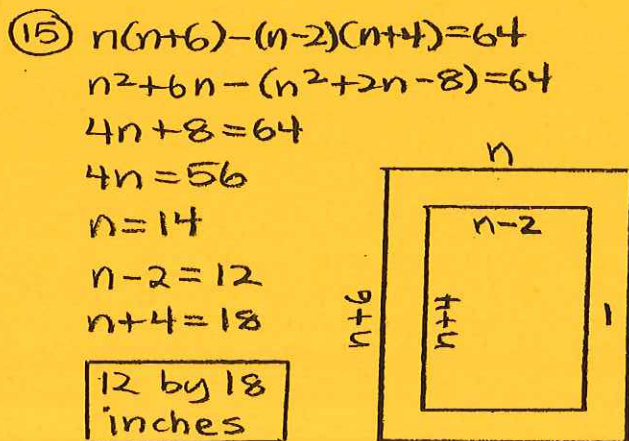 15 n(n+6)-(n-2)(n+4)=64
n²+6n-(n²+2n-8)=64
4n+8=64
4n=56
n=14
n-2=12
n+4=18
12 by 18
inches
n
n-2
n+6
n+4
1